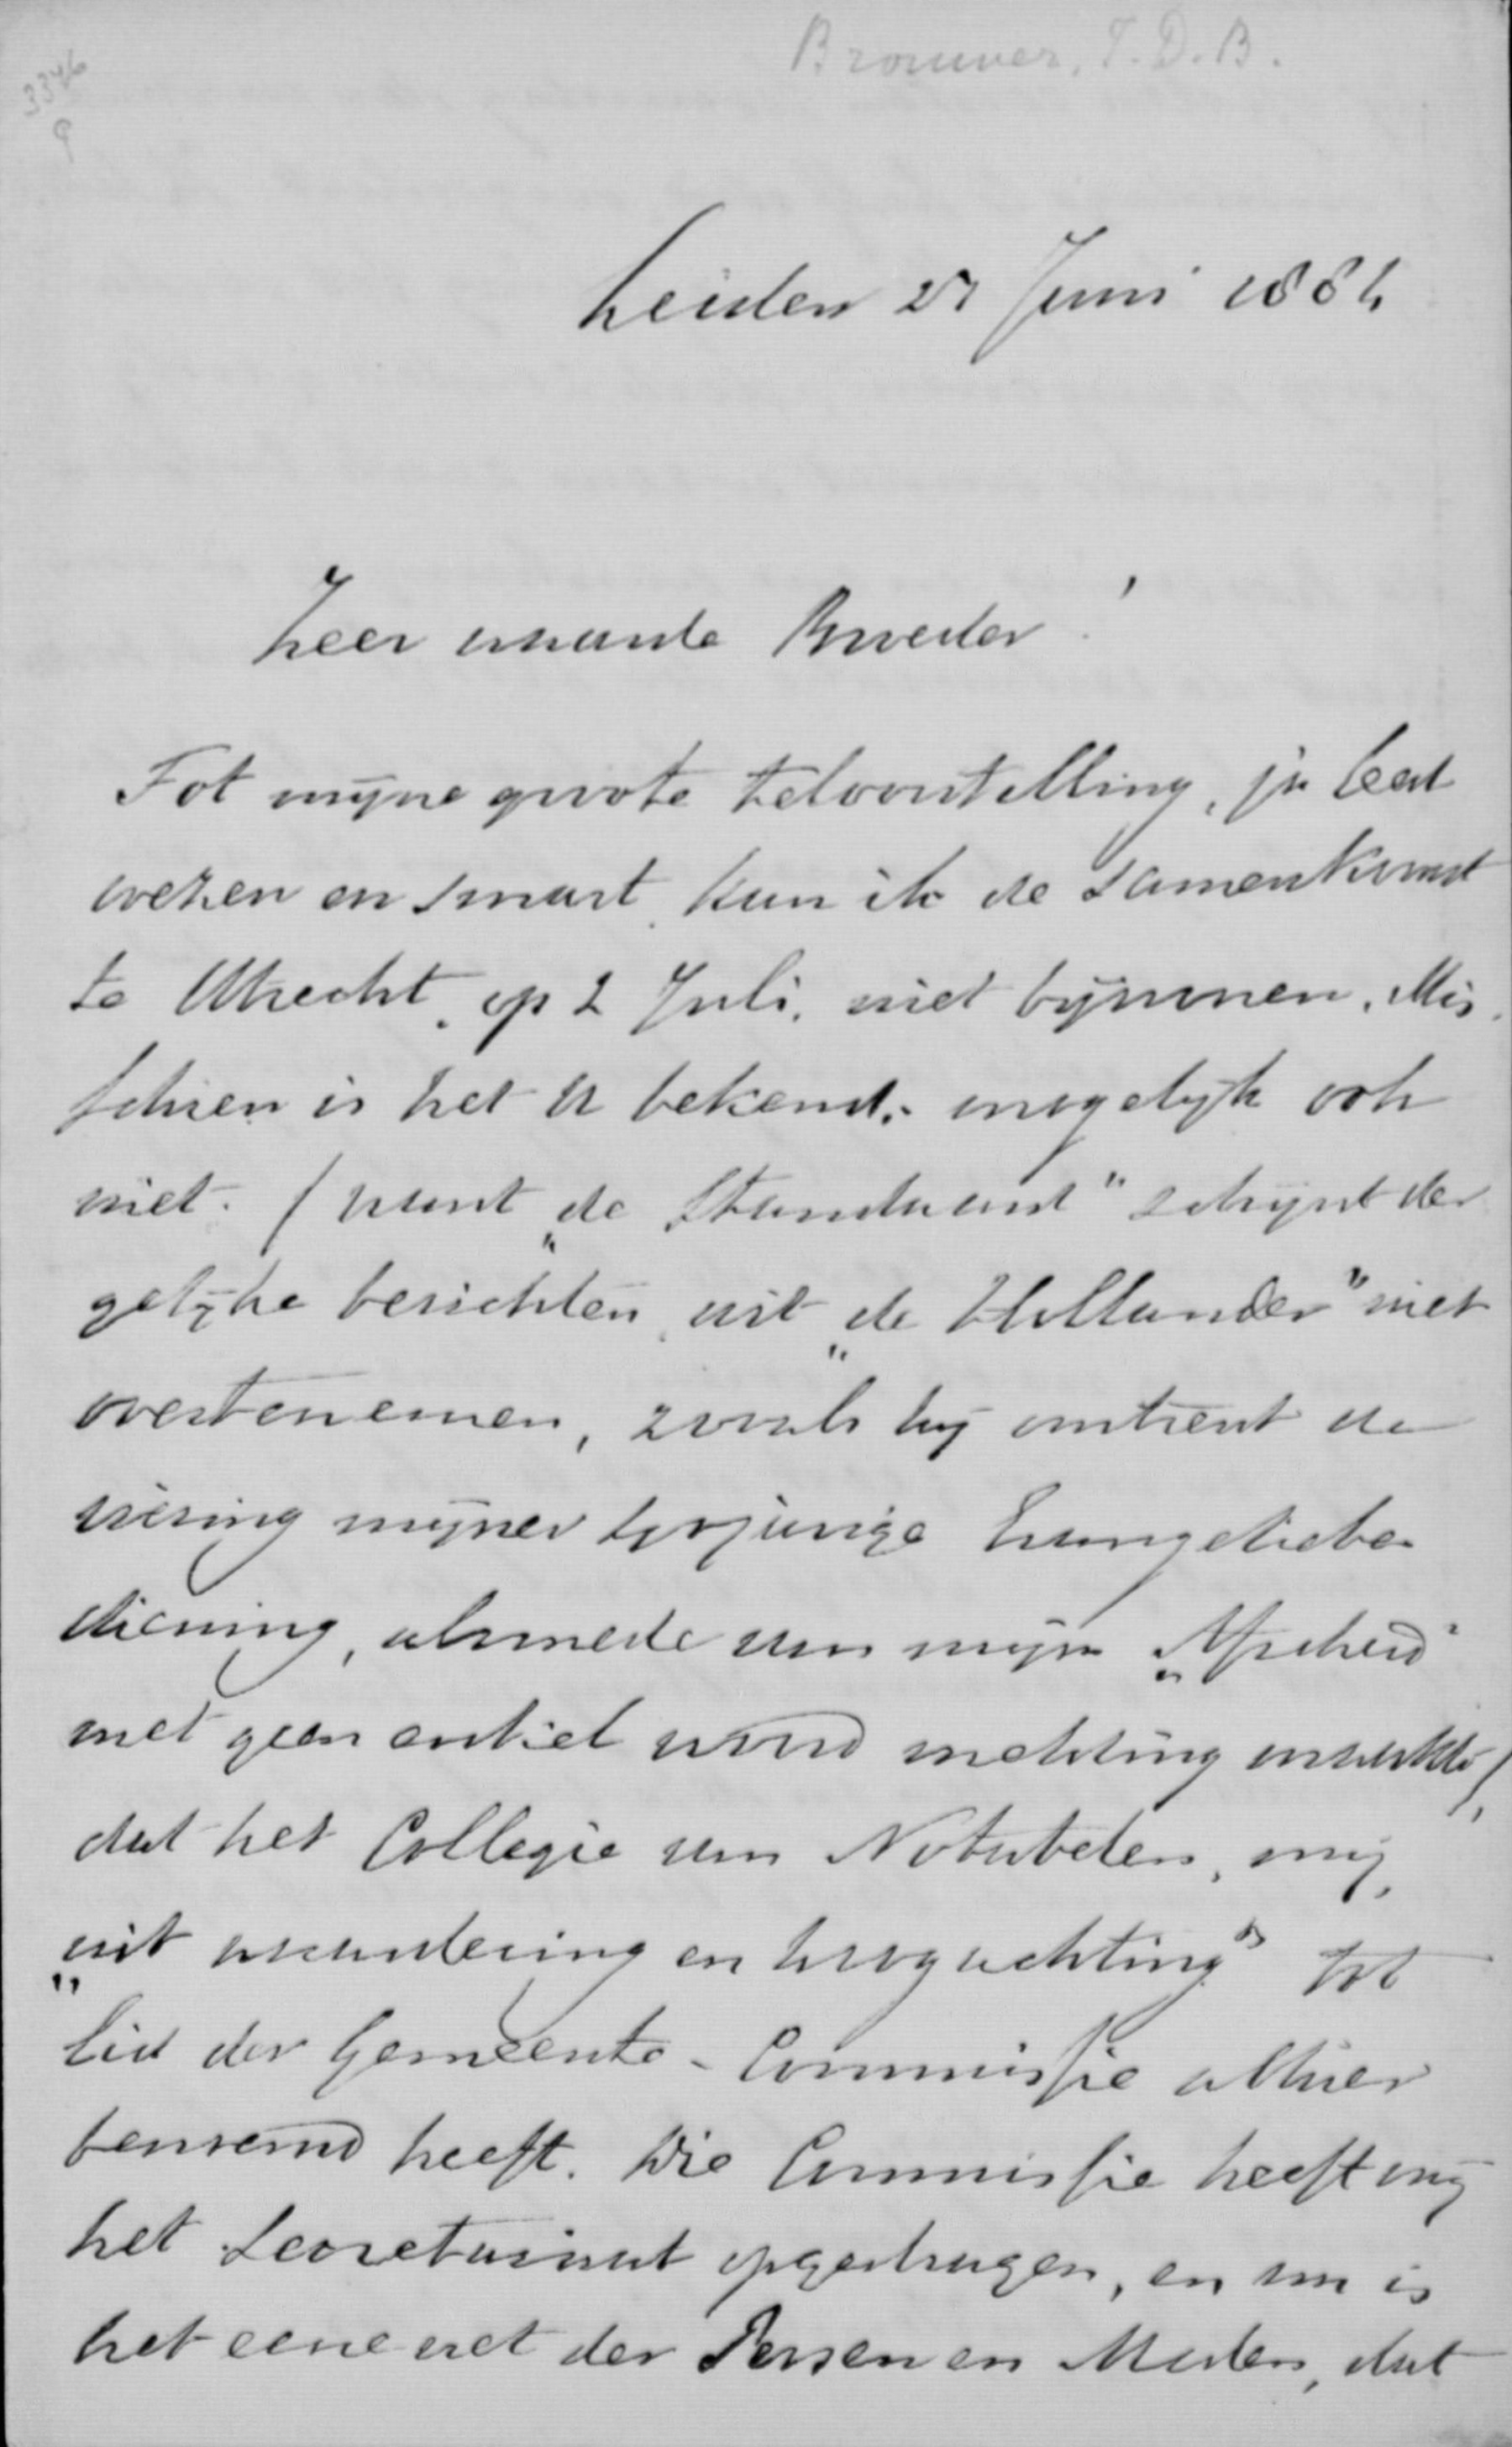 Brouwer, T. D. B.
3346
9
Leiden 27 Juni 1884
Zeer waarde Broeder!
Tot mijne groote teloorstelling, ja leed
wezen en smart, kan ik de samenkomst
te Utrecht, op 2 Juli, niet bijwonen. Mis
schien is het U bekend, mogelijk ook
niet. (want „de Standaard" schijnt der
gelijke berichten, uit „de Hollander" niet
overtenemen, zooals hij omtrent de
viering mijner jarige Evangeliebe
diening, alsmede van mijn „Afscheid"
met geen enkel woord melding maakte)
dat het Collegie van Notabelen, mij,
„uit waardeering en hoogachting" tot
lid der Gemeente-Commissie alhier
benoemd heeft. Die Commissie heeft mij
het Secretariaat opgedragen, en nu is
het eene wet der Perzen en Meden, dat